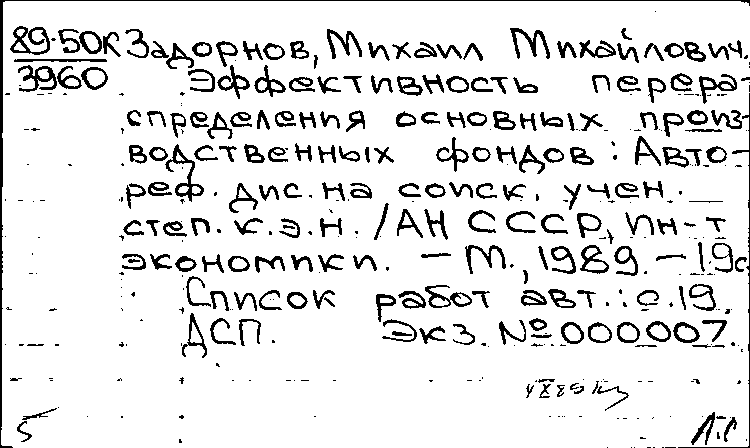 89-50К Задорнов, Михаил Михайлович.
3960 Эффективность перера-
спределения основных произ-
водственных фондов : Авто-
реф. дис. на соиск. учен.
степ. к.э.н. / АН СССР, Ин-т
экономики. — М., 1989. — 19с
Список работ авт.: с.19.
ДСП. Экз. №000007.
5 Л.С